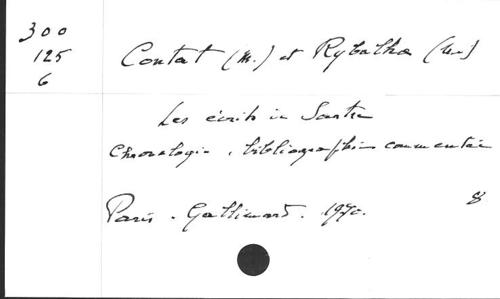 300
125
6
Contat (M.) et Rybalka (M.)
Les écrits de Sartre
Chronologie, bibliographie commentée
Paris. Gallimard. 1970.
8